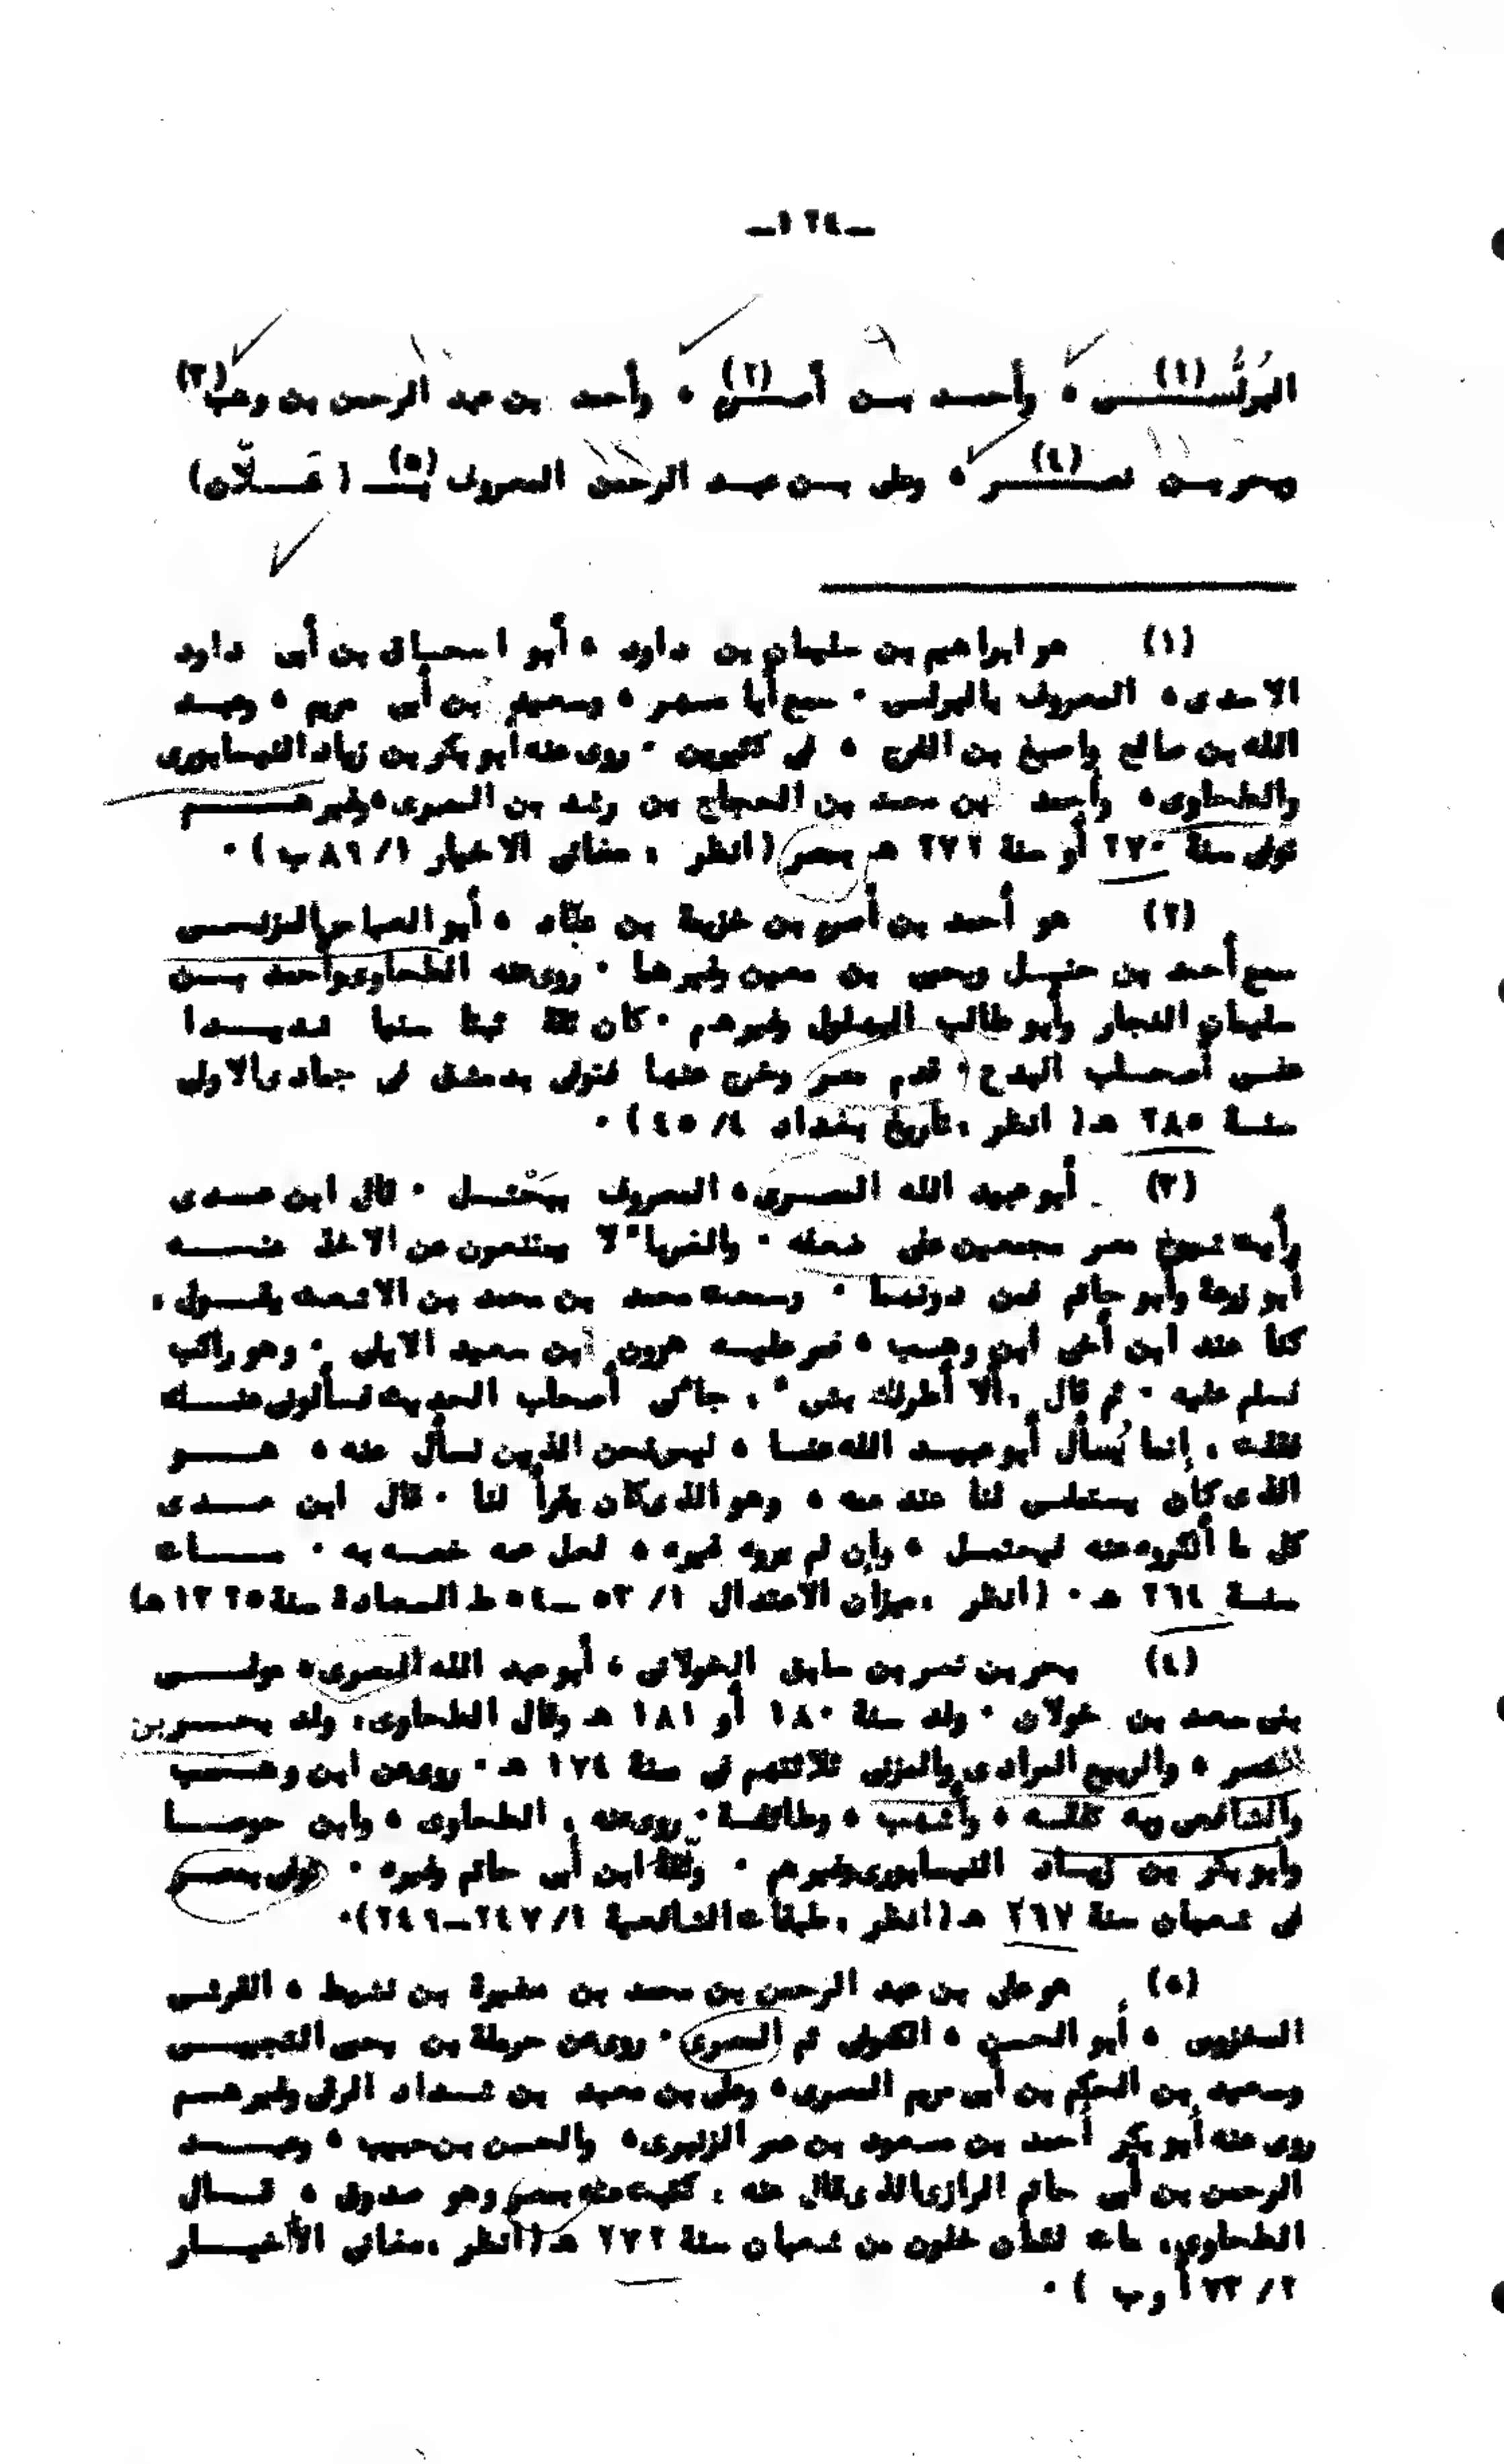 ـ١٢٤ـ
البُرُلُّسى(١) ، وأحمد بن أصرم(٢) ، وأحمد بن عبد الرحمن بن وهب(٣)
وبحر بن نصر(٤) ، وعلى بن عبد الرحمن المعروف بـ(٥) ( عَلّان )
(١) هو ابراهيم بن سليمان بن داود ، أبو اسحاق بن أبى داود
الاسدى ، المعروف بالبرلسى . سمع أبا مسهر ، وسعيد بن أبى مريم ، وعبد
الله بن صالح واصبغ بن الفرج ، فى كثيرين . روى عنه أبو بكر بن زياد النيسابورى
والطحاوى ، وأحمد بن محمد بن الحجاج بن رشد بن المصرى ، وغيرهم
توفى سنة ٢٧٠ أو سنة ٢٧٢ هـ بمصر ( انظر : مغانى الاخيار ١ / ٨٩ ب ) .
(٢) هو أحمد بن أصرم بن خزيمة بن عبّاد ، أبو العباس المزنى
سمع أحمد بن حنبل ويحيى بن معين وغيرهما . روى عنه الطحاوى وأحمد بن
سليمان النجار وأبو طالب البهلول وغيرهم . كان ثقة ثبتا سنيا شديدا
على أصحاب البدع ، قدم مصر وخرج عنها فتوفى بدمشق فى جمادى الاولى
سنة ٢٨٥ هـ ( انظر : تاريخ بغداد ٤ / ٤٥ ) .
(٣) أبو عبيد الله المصرى ، المعروف ببَحْشل . قال ابن عدى
رأيت شيوخ مصر مجمعين على ضعفه . والغرباء لا يمتنعون من الاخذ عنه
أبو زرعة وأبو حاتم فمن دونهما . وسمعت محمد بن محمد بن الاشعث يقول :
كنا عند ابن أخى ابن وهب ، فمر عليه هرون ابن سعيد الايلى . وهو راكب
فسلم عليه . ثم قال : ألا أطرفك بشىء : جاءنى أصحاب الحديث فسألونى عنك
فقلت : إنما يُسأل أبو عبيد الله عنا ، ليس نحن الذين نسأل عنه ، هو
الذى كان يستملى لنا عند عمه ، وهو الذى كان يقرأ لنا . قال ابن عدى
كل ما أنكروه عنه فيحتمل ، وإن لم يروه غيره ، لعل عمه خصه به . مات
سنة ٢٦٤ هـ . ( انظر : ميزان الاعتدال ١ / ٥٣ ـ ٥٤ ط السعادة سنة ١٣٢٥ هـ )
(٤) بحر بن نصر بن سابق الخولانى ، أبو عبد الله المصرى ، مولى
بنى سعد بن خولان . ولد سنة ١٨٠ أو ١٨١ هـ وقال الطحاوى : ولد بحر بن
نصر ، والربيع المرادى والمزنى ثلاثتهم فى سنة ١٧٤ هـ . روى عن ابن وهب
والشافعى وبه تفقه ، وأشهب ، وطائفة . روى عنه : الطحاوى ، وابن جوصا
وأبو بكر بن زياد النيسابورى وغيرهم . وثّقه ابن أبى حاتم وغيره . توفى بمصر
فى شعبان سنة ٢٦٧ هـ ( انظر : طبقات الشافعية ١ / ٢٤٧ ـ ٢٤٩ ) .
(٥) هو على بن عبد الرحمن بن محمد بن مغيرة بن نشيط ، القرشى
المخزومى ، أبو الحسن ، الكوفى ثم المصرى . روى عن حرملة بن يحيى التجيبى
وسعيد بن الحكم بن أبى مريم المصرى ، وعلى بن معبد بن شداد الرقى وغيرهم
روى عنه أبو بكر أحمد بن مسعود بن عمر الزنبرى ، والحسن بن حبيب ، وعبد
الرحمن بن أبى حاتم الرازى الذى قال عنه : كتبت عنه بمصر وهو صدوق ، قال
الطحاوى : مات لثمان خلون من شعبان سنة ٢٧٢ هـ ( انظر : مغانى الأخيار
٢ / ٧٣ أ و ب ) .